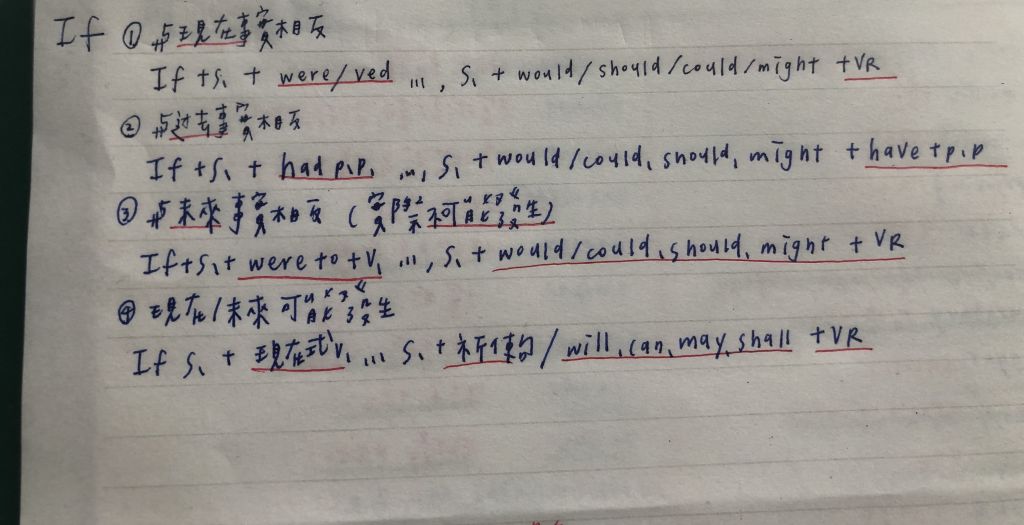 If ① 与現在事實相反
If + S. + were/ved ..., S. + would/should/could/might + VR
② 与过去事實相反
If + S. + had p.p. ..., S. + would/could, should, might + have + p.p
③ 与未來事實相反 (實際不可能發生)
If + S. + were to + V. ..., S. + would/could, should, might + VR
④ 現在/未來可能發生
If S. + 現在式V. ... S. + 祈使句/will, can, may, shall + VR